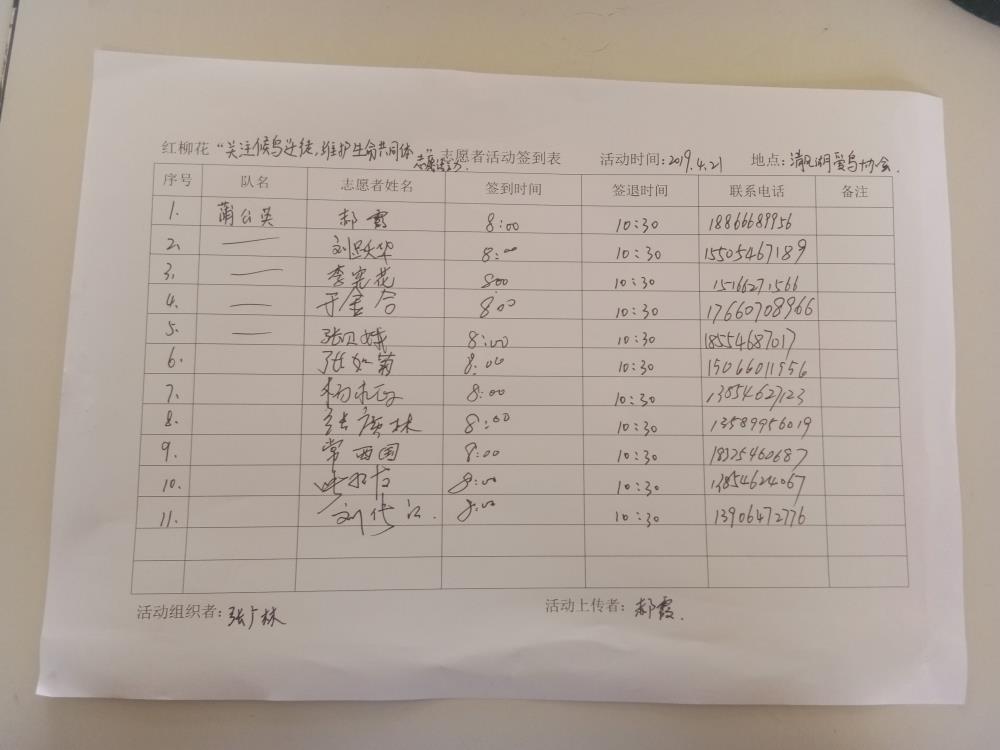 红柳花“关注候鸟迁徙,维护生命共同体”志愿者活动签到表 活动时间:2019.4.21 地点:清风湖爱鸟协会.
志愿活动.
序号 队名 志愿者姓名 签到时间 签退时间 联系电话 备注
1. 蒲公英 郝霞 8:00 10:30 18866689956
2. — 刘跃华 8:00 10:30 15505467189
3. — 李完花 800 10:30 15166271566
4. — 于金合 8:00 10:30 17660708966
5. — 8:00 10:30 18554687017
6. 张如菊 8:00 10:30 15066011956
7. 8:00 10:30 13854627123
8. 张广林 8:00 10:30 13589956019
9. 常西国 8:00 10:30 18325460687
10. 8:00 10:30 13854624067
11. 刘代江. 8:00 10:30 13906472776
活动组织者:张广林 活动上传者:郝霞.